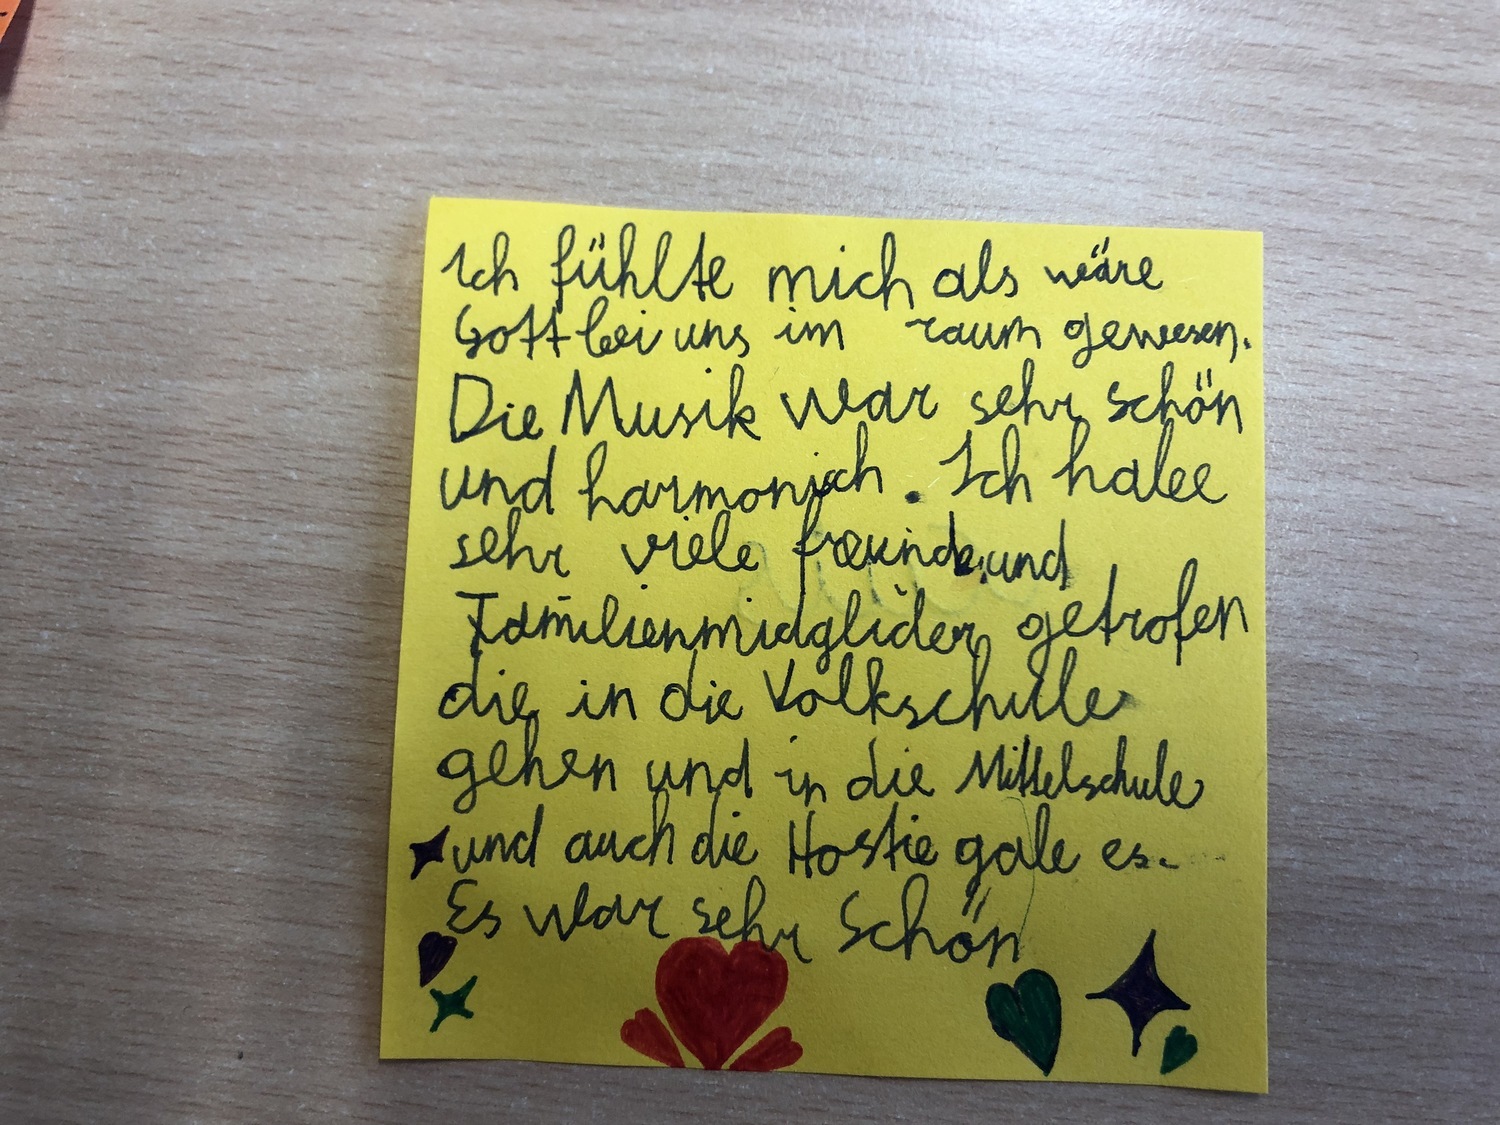 Ich fühlte mich als wäre
Gott bei uns im raum gewesen.
Die Musik war sehr schön
und harmonisch. Ich habe
sehr viele freunde und
Familienmidglider getrofen
die in die Volkschule
gehen und in die Mittelschule
und auch die Hostie gabe es.
Es war sehr Schön